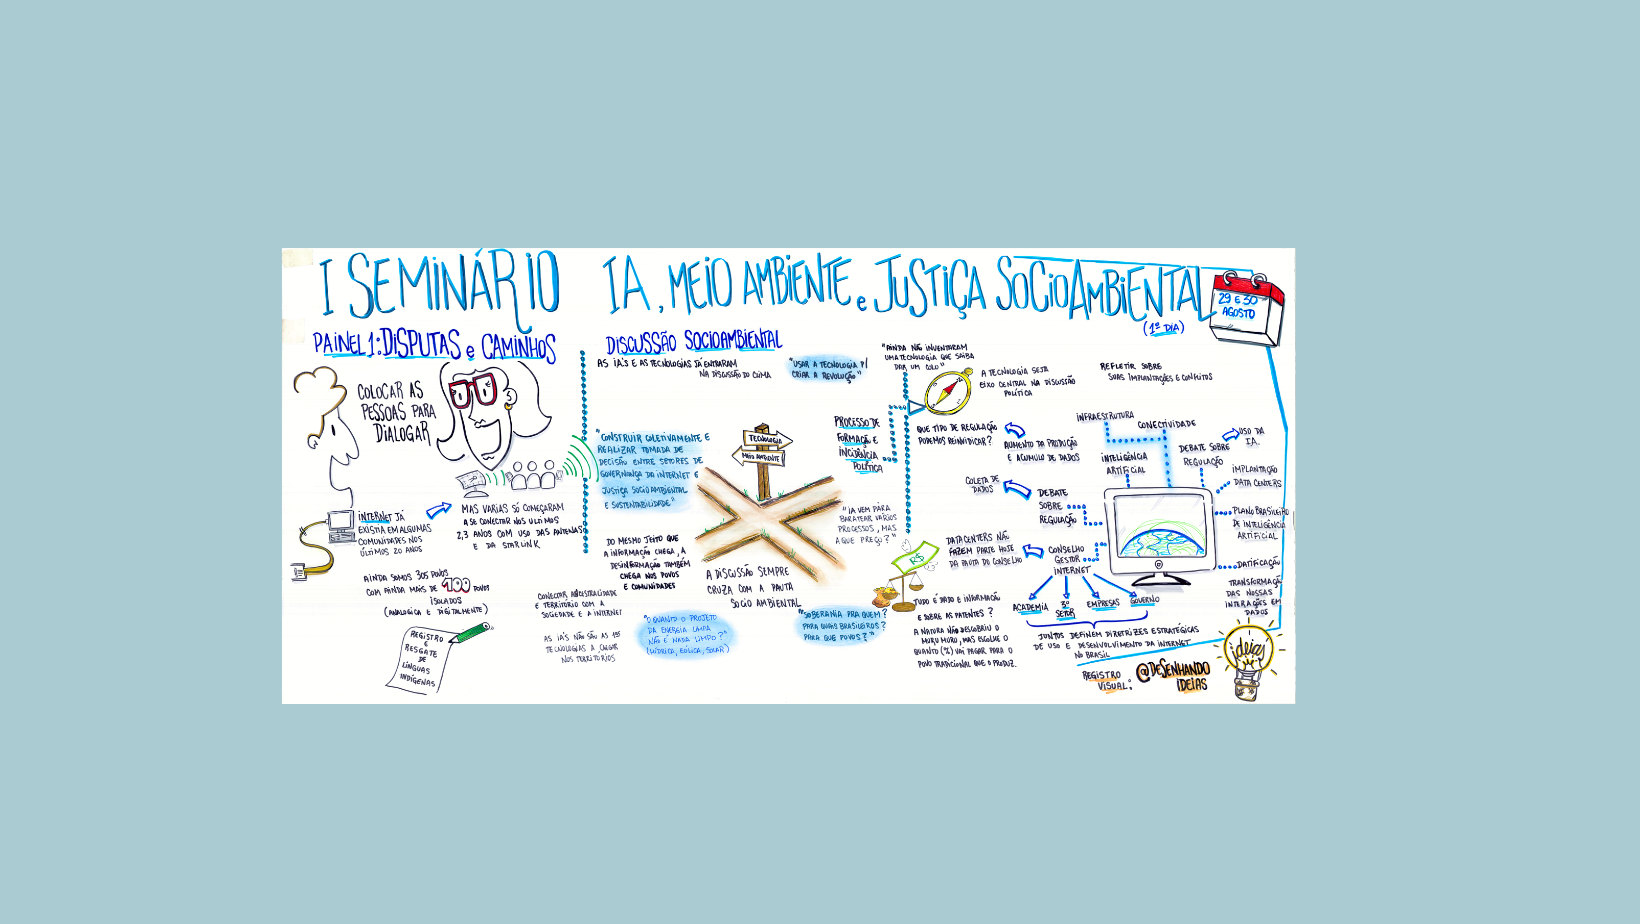 I SEMINÁRIO IA, MEIO AMBIENTE e JUSTIÇA SOCIOAMBIENTAL
(1º DIA)
29 E 30
AGOSTO
PAINEL 1: DISPUTAS e CAMINHOS
COLOCAR AS
PESSOAS PARA
DIALOGAR
INTERNET JÁ
EXISTIA EM ALGUMAS
COMUNIDADES NOS
ÚLTIMOS 20 ANOS
MAS VARIAS SÓ COMEÇARAM
A SE CONECTAR NOS ULTIMOS
2,3 ANOS COM USO DAS ANTENAS
E DA STARLINK
AINDA SOMOS 305 POVOS
COM AINDA MAIS DE 100 POVOS
ISOLADOS
(ANALOGICA E DIGITALMENTE)
REGISTRO
E
RESGATE
DE
LÍNGUAS
INDÍGENAS
DISCUSSÃO SOCIOAMBIENTAL
AS IA'S E AS TECNOLOGIAS JÁ ENTRARAM
NA DISCUSSÃO DO CLIMA
"USAR A TECNOLOGIA P/
CRIAR A REVOLUÇÃO"
"CONSTRUIR COLETIVAMENTE E
REALIZAR TOMADA DE
DECISÃO ENTRE SETORES DE
GOVERNANÇA DA INTERNET E
JUSTIÇA SOCIOAMBIENTAL
E SUSTENTABILIDADE"
TECNOLOGIA
MEIO AMBIENTE
DO MESMO JEITO QUE
A INFORMAÇÃO CHEGA, A
DESINFORMAÇÃO TAMBÉM
CHEGA NOS POVOS
E COMUNIDADES
A DISCUSSÃO SEMPRE
CRUZA COM A PAUTA
SOCIO AMBIENTAL
CONECTAR ANCESTRALIDADE
E TERRITÓRIO COM A
SOCIEDADE E A INTERNET
AS IA'S NÃO SÃO AS 1ªS
TECNOLOGIAS A CHEGAR
NOS TERRITÓRIOS
"O QUANTO O PROJETO
DA ENERGIA LIMPA
NÃO É NADA LIMPO?"
(HÍDRICA, EÓLICA, SOLAR)
PROCESSO DE
FORMAÇÃO E
INCIDÊNCIA
POLÍTICA
"IA VEM PARA
BARATEAR VÁRIOS
PROCESSOS, MAS
A QUE PREÇO?"
"SOBERANIA PRA QUEM?
PARA QUAIS BRASILEIROS?
PARA QUE POVOS?"
"AINDA NÃO INVENTARAM
UMA TECNOLOGIA QUE SAIBA
DAR UM COLO"
A TECNOLOGIA SEJA
EIXO CENTRAL NA DISCUSSÃO
POLÍTICA
REFLETIR SOBRE
SUAS IMPLANTAÇÕES E CONFLITOS
QUE TIPO DE REGULAÇÃO
PODEMOS REINVIDICAR?
AUMENTO DA PRODUÇÃO
E ACUMULO DE DADOS
COLETA DE
DADOS
DEBATE
SOBRE
REGULAÇÃO
INFRAESTRUTURA
CONECTIVIDADE
INTELIGÊNCIA
ARTIFICIAL
DEBATE SOBRE
REGULAÇÃO
USO DA
I.A.
IMPLANTAÇÃO
DATA CENTERS
PLANO BRASILEIRO
DE INTELIGÊNCIA
ARTIFICIAL
DATIFICAÇÃO
TRANSFORMAÇÃO
DAS NOSSAS
INTERAÇÕES EM
DADOS
DATACENTERS NÃO
FAZEM PARTE HOJE
DA PAUTA DO CONSELHO
CONSELHO
GESTOR
INTERNET
ACADEMIA
3º
SETOR
EMPRESAS
GOVERNO
JUNTOS DEFINEM DIRETRIZES ESTRATÉGICAS
DE USO E DESENVOLVIMENTO DA INTERNET
NO BRASIL
R$
TUDO É DADO E INFORMAÇÃO
E SOBRE AS PATENTES?
A NATURA NÃO DESCOBRIU O
MURU MURU, MAS ESCOLHE O
QUANTO (%) VAI PAGAR PARA O
POVO TRADICIONAL QUE O PRODUZ.
REGISTRO
VISUAL:
@DESENHANDO
IDEIAS
ideias